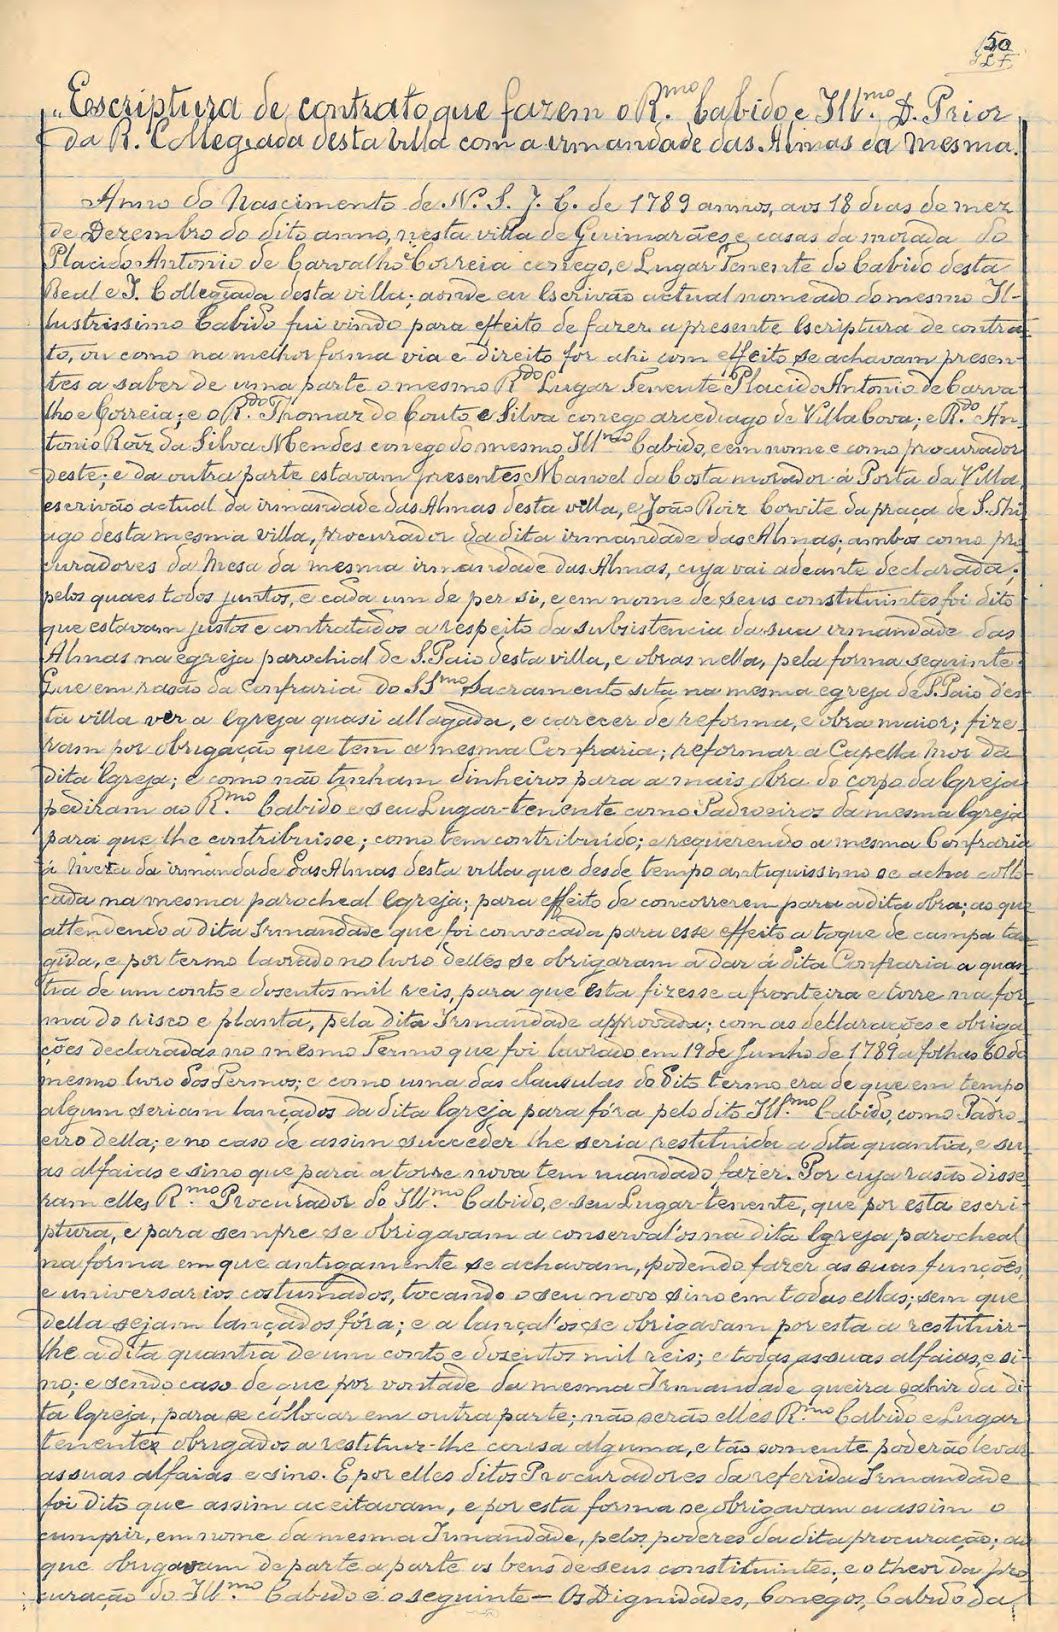 50
"Escriptura de contrato que fazem o R.mo Cabido e Ill.mo D. Prior
da R. Collegiada desta villa com a irmandade das Almas da mesma.
Anno do Nascimento de N. S. J. C. de 1789 annos, aos 18 dias do mez
de Dezembro do dito anno, nesta villa de Guimarães e casas da morada do
Placido Antonio de Carvalho e Correia conego, e Lugar Tenente do Cabido desta
Real e I. Collegiada desta villa; aonde eu Escrivão actual nomeado do mesmo Il-
lustrissimo Cabido fui vindo para effeito de fazer a presente Escriptura de contra-
to, ou como na melhor forma via e direito for ahi com effeito se achavam presen-
tes a saber de uma parte o mesmo R.do Lugar Tenente Placido Antonio de Carva-
lho e Correia; e o R.do Thomaz do Couto e Silva conego arcediago de Villa Cova; e R.do An-
tonio Roiz da Silva Mendes conego do mesmo Ill.mo Cabido, e em nome e como procurador
deste; e da outra parte estavam presentes Manoel da Costa morador á Porta da Villa,
escrivão actual da irmandade das Almas desta villa, e João Roiz Cowite da praça de S. Thi-
ago desta mesma villa, procurador da dita irmandade das Almas; ambos como pro-
curadores da Mesa da mesma irmandade das Almas, cuja vai adeante declarada;
pelos quaes todos juntos, e cada um de per si, e em nome de seus constituintes foi dito
que estavam justos e contratados a respeito da subsistencia da sua irmandade das
Almas na egreja parochial de S. Paio desta villa, e obras nella, pela forma seguinte.
Que em rasão da Confraria do SS.mo Sacramento sita na mesma egreja de S. Paio d'es-
ta villa ver a Egreja quasi allagada, e carecer de reforma, e obra maior; fize-
ram por obrigação que tem a mesma Confraria; reformar a Capella Mor da
dita Egreja; e como não tinham dinheiros para a mais obra do corpo da Egreja
pediram ao R.mo Cabido e seu Lugar-tenente como Padroeiros da mesma Egreja
para que lhe contribuisse; como tem contribuido; e requerendo a mesma Confraria
á Meza da irmandade das Almas desta villa que desde tempo antiquissimo se acha collo-
cada na mesma parocheal Egreja; para effeito de concorrerem para a dita obra; ao que
attendendo a dita Irmandade que foi convocada para esse effeito a toque de campa tan-
gida, e por termo lavrado no livro delles se obrigaram a dar á dita Confraria a quan-
tia de um conto e dosentos mil reis, para que esta fizesse a fronteira e torre na for-
ma do risco e planta, pela dita Irmandade approvada; com as declarações e obriga-
ções declaradas no mesmo Termo que foi lavrado em 19 de Junho de 1789 a folhas 60 do
mesmo livro dos Termos; e como uma das clausulas do dito termo era de que em tempo
algum seriam lançados da dita Egreja para fóra pelo dito Ill.mo Cabido, como Padro-
eiro della; e no caso de assim succeder lhe seria restituida a dita quantia, e su-
as alfaias e sino que para a torre nova tem mandado fazer. Por cuja rasão disse-
ram elles R.mo Procurador do Ill.mo Cabido, e seu Lugar-tenente, que por esta escri-
ptura, e para sempre se obrigavam a conserval'os na dita Egreja parocheal
na fórma em que antigamente se achavam, podendo fazer as suas funções,
e universarios costumados, tocando o seu novo sino em todas ellas; sem que
della sejam lançados fóra; e a lançal'os se obrigavam por esta a restituir-
lhe a dita quantia de um conto e dosentos mil reis; e todas as suas alfaias, e si-
no; e sendo caso de que por vontade da mesma Irmandade queira sahir da di-
ta Egreja, para se collocar em outra parte; não serão elles R.mo Cabido e Lugar
tenentes obrigados a restituir-lhe cousa alguma, e tão somente poderão levar
as suas alfaias e sino. E por elles ditos Procuradores da referida Irmandade
foi dito que assim aceitavam, e por esta forma se obrigavam a assim o
cumprir, em nome da mesma Irmandade, pelos poderes da dita procuração; ao
que obrigavam de parte a parte os bens de seus constituintes; e o theor da pro-
curação do Ill.mo Cabido é o seguinte — Os Dignidades, Conegos, Cabido da